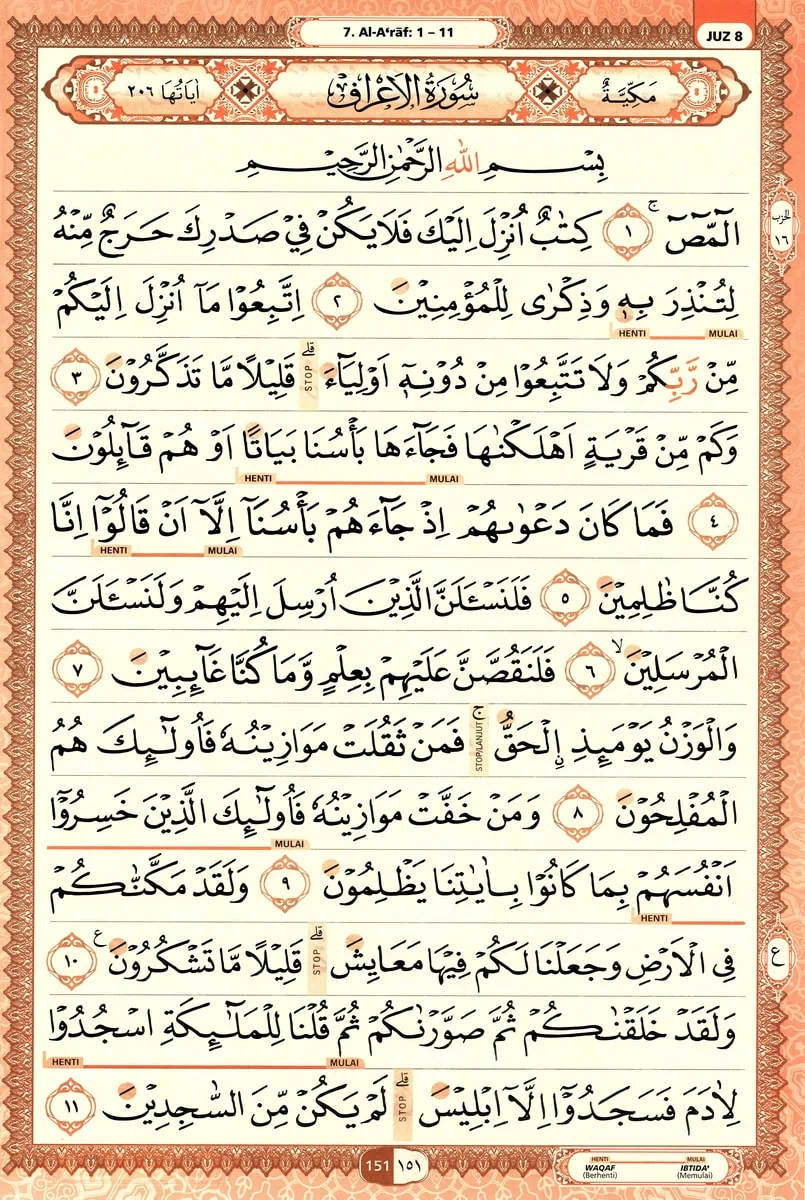 7. Al-A‘rāf: 1 – 11
JUZ 8
مَكِّيَّةٌ
سُوْرَةُ الْاَعْرَافِ
اٰيَاتُهَا ٢٠٦
بِسْمِ اللّٰهِ الرَّحْمٰنِ الرَّحِيْمِ
الۤمّۤصۤ ۚ ١ كِتٰبٌ اُنْزِلَ اِلَيْكَ فَلَا يَكُنْ فِيْ صَدْرِكَ حَرَجٌ مِّنْهُ
الحزب
١٦
لِتُنْذِرَ بِهٖ وَذِكْرٰى لِلْمُؤْمِنِيْنَ ٢ اِتَّبِعُوْا مَآ اُنْزِلَ اِلَيْكُمْ
١
HENTI MULAI
مِّنْ رَّبِّكُمْ وَلَا تَتَّبِعُوْا مِنْ دُوْنِهٖٓ اَوْلِيَاۤءَ ۗ STOP قَلِيْلًا مَّا تَذَكَّرُوْنَ ٣
وَكَمْ مِّنْ قَرْيَةٍ اَهْلَكْنٰهَا فَجَاۤءَهَا بَأْسُنَا بَيَاتًا اَوْ هُمْ قَاۤىِٕلُوْنَ
HENTI MULAI
٤ فَمَا كَانَ دَعْوٰىهُمْ اِذْ جَاۤءَهُمْ بَأْسُنَآ اِلَّآ اَنْ قَالُوْٓا اِنَّا
HENTI MULAI
كُنَّا ظٰلِمِيْنَ ٥ فَلَنَسْـَٔلَنَّ الَّذِيْنَ اُرْسِلَ اِلَيْهِمْ وَلَنَسْـَٔلَنَّ
الْمُرْسَلِيْنَ ۙ ٦ فَلَنَقُصَّنَّ عَلَيْهِمْ بِعِلْمٍ وَّمَا كُنَّا غَاۤىِٕبِيْنَ ٧
وَالْوَزْنُ يَوْمَىِٕذِ ِۨالْحَقُّ ۚ STOP/LANJUT فَمَنْ ثَقُلَتْ مَوَازِيْنُهٗ فَاُولٰۤىِٕكَ هُمُ
الْمُفْلِحُوْنَ ٨ وَمَنْ خَفَّتْ مَوَازِيْنُهٗ فَاُولٰۤىِٕكَ الَّذِيْنَ خَسِرُوْٓا
MULAI
اَنْفُسَهُمْ بِمَا كَانُوْا بِاٰيٰتِنَا يَظْلِمُوْنَ ٩ وَلَقَدْ مَكَّنّٰكُمْ
HENTI
فِى الْاَرْضِ وَجَعَلْنَا لَكُمْ فِيْهَا مَعَايِشَ ۗ STOP قَلِيْلًا مَّا تَشْكُرُوْنَ ࣖ ١٠
ع
وَلَقَدْ خَلَقْنٰكُمْ ثُمَّ صَوَّرْنٰكُمْ ثُمَّ قُلْنَا لِلْمَلٰۤىِٕكَةِ اسْجُدُوْا
HENTI MULAI
لِاٰدَمَ فَسَجَدُوْٓا اِلَّآ اِبْلِيْسَ ۗ STOP لَمْ يَكُنْ مِّنَ السّٰجِدِيْنَ ١١
151 ١٥١
HENTI MULAI
WAQAF IBTIDA'
(Berhenti) (Memulai)